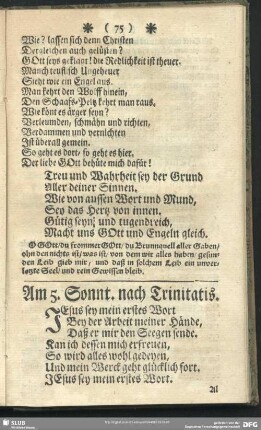 ( 75 )
Wie? lassen sich denn Christen
Dergleichen auch gelüsten?
GOtt seys geklagt! die Redlichkeit ist theuer.
Manch teuflisch Ungeheuer
Sieht wie ein Engel aus.
Man kehrt den Wolff hinein,
Den Schaafs-Peltz kehrt man raus.
Wie könt es ärger seyn?
Verleumden, schmähn und richten,
Verdammen und vernichten
Ist überall gemein.
So geht es dort, so geht es hier.
Der liebe GOtt behüte mich dafür!
Treu und Wahrheit sey der Grund
Aller deiner Sinnen,
Wie von aussen Wort und Mund,
Sey das Hertz von innen.
Gütig seyn, und tugendreich,
Macht uns GOtt und Engeln gleich.
O GOtt/ du frommer GOtt/ du Brunnquell aller Gaben/
ohn den nichts ist/ was ist/ von dem wir alles haben/ gesun-
den Leib gieb mir/ und daß in solchem Leib ein unver-
letzte Seel und rein Gewissen bleib.
Am 5. Sonnt. nach Trinitatis.
JEsus sey mein erstes Wort
Bey der Arbeit meiner Hände,
Daß er mir den Seegen sende.
Kan ich dessen mich erfreuen,
So wird alles wohl gedeyen,
Und mein Werck geht glücklich fort.
JEsus sey mein erstes Wort.
All
SLUB
DFG